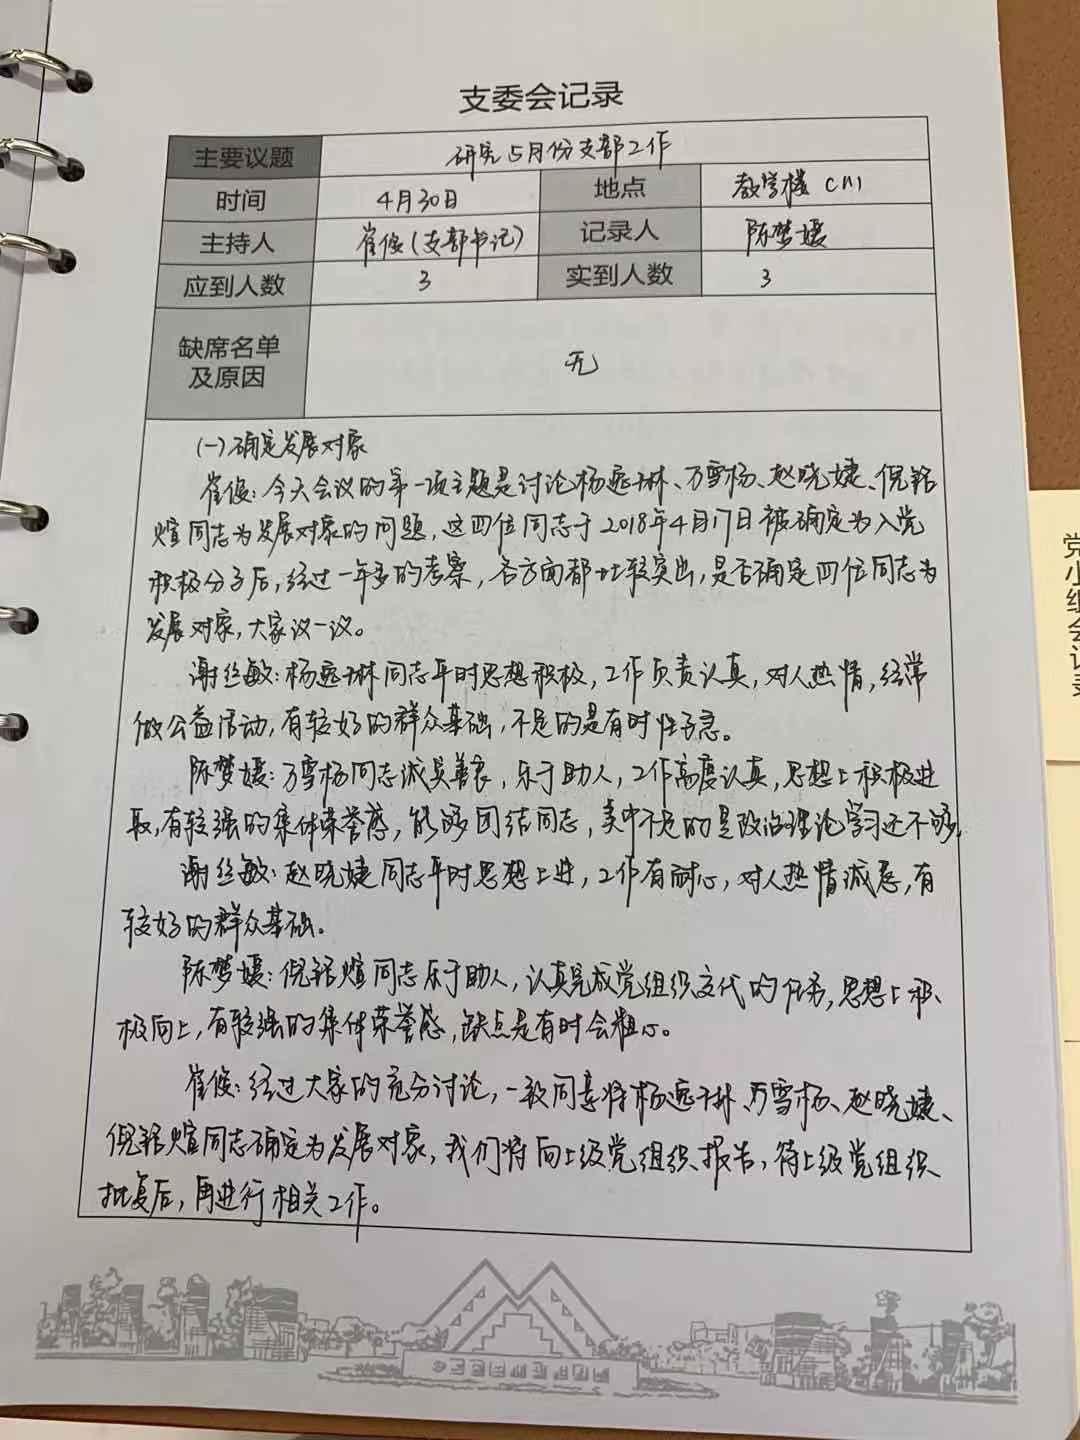 支委会记录
主要议题 研究5月份支部工作
时间 4月30日 地点 教学楼 C111
主持人 崔俊(支部书记) 记录人 陈梦媛
应到人数 3 实到人数 3
缺席名单
及原因 无
(一)确定发展对象
崔俊:今天会议的第一项主题是讨论杨远琳、万雪杨、赵晓婕、倪铭
煊同志为发展对象的问题,这四位同志于2018年4月17日被确定为入党
积极分子后,经过一年多的考察,各方面都比较突出,是否确定四位同志为
发展对象,大家议一议。
谢丝敏:杨远琳同志平时思想积极,工作负责认真,对人热情,经常
做公益活动,有较好的群众基础,不足的是有时性子急。
陈梦媛:万雪杨同志诚实善良,乐于助人,工作高度认真,思想上积极进
取,有较强的集体荣誉感,能够团结同志,美中不足的是政治理论学习还不够,
谢丝敏:赵晓婕同志平时思想上进,工作有耐心,对人热情诚恳,有
较好的群众基础。
陈梦媛:倪铭煊同志乐于助人,认真完成党组织交代的任务,思想上积
极向上,有较强的集体荣誉感,缺点是有时会粗心。
崔俊:经过大家的充分讨论,一致同意将杨远琳、万雪杨、赵晓婕、
倪铭煊同志确定为发展对象,我们将向上级党组织报告,待上级党组织
批复后,再进行相关工作。
党小组会记录